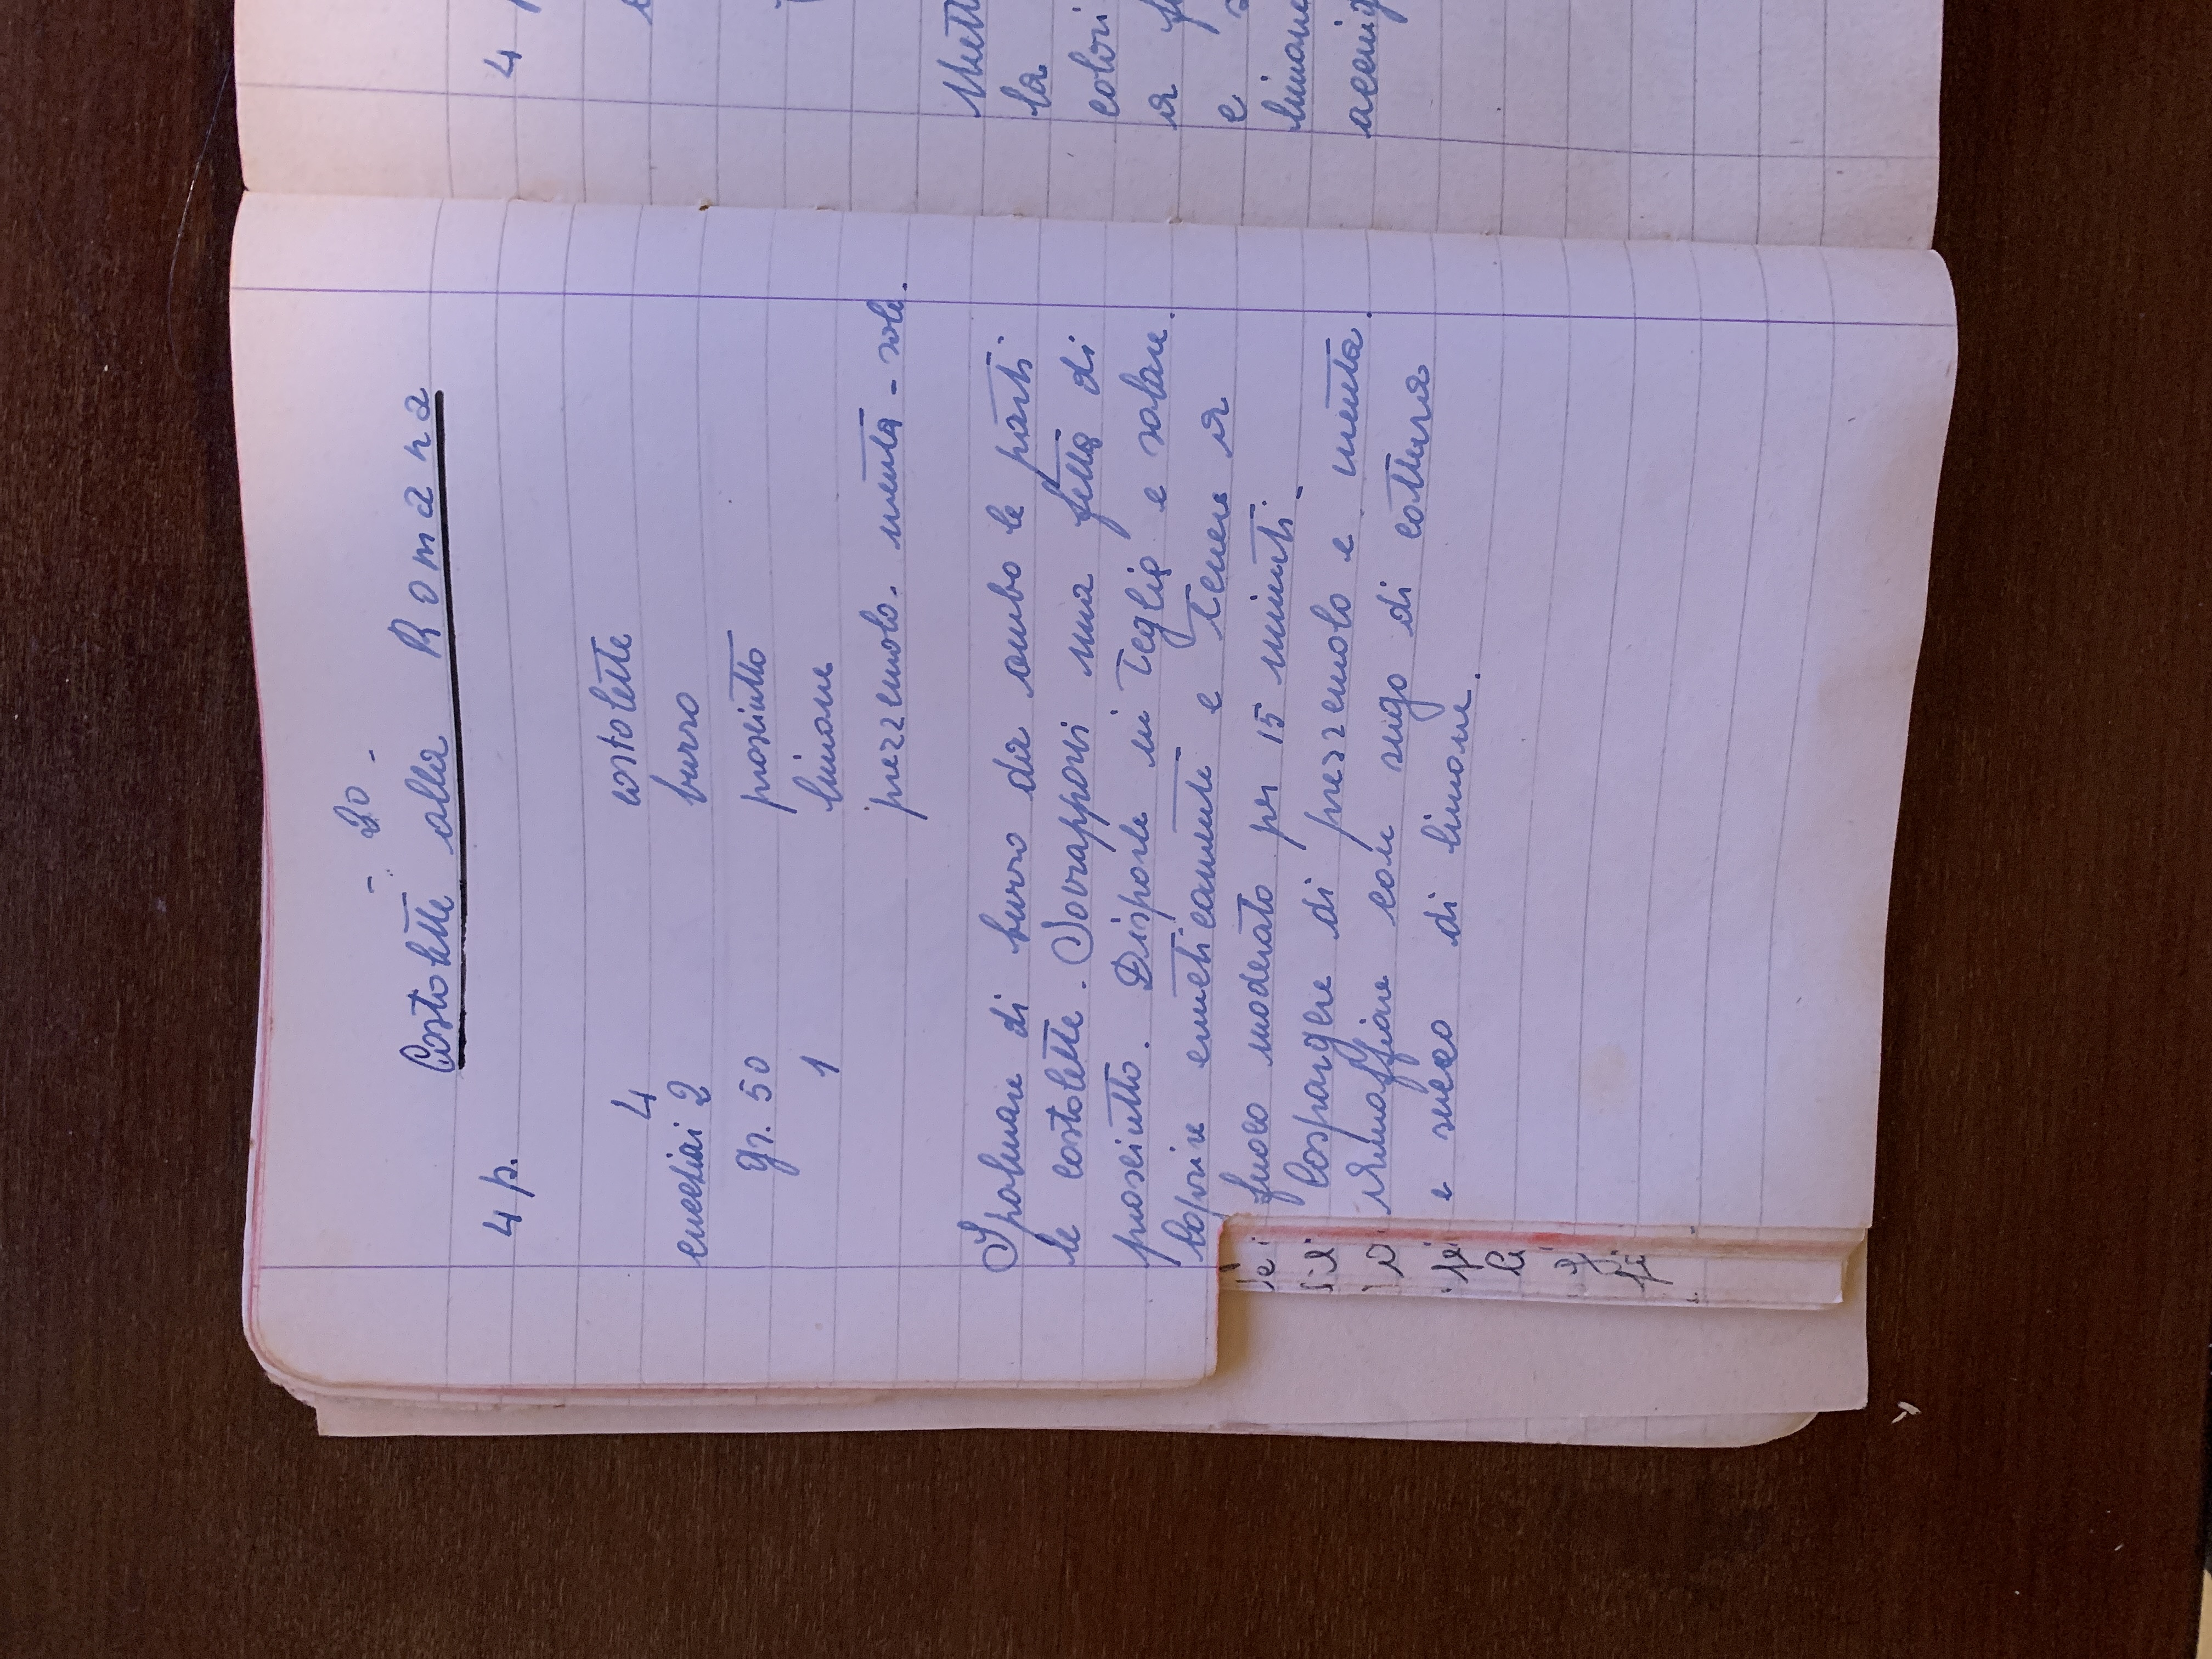 - 20 -
Costolette alla Romana
4 p.
4 costolette
cucchiai 2 burro
gr. 50 prosciutto
1 limone
prezzemolo - menta - sale.
Spalmare di burro da ambo le parti
le costolette. Sovrapporvi una fetta di
prosciutto. Disporle in teglia e salare.
Coprire ermeticamente e tenere a
fuoco moderato per 15 minuti.
Cospargere di prezzemolo e menta.
Annaffiare con sugo di cottura
e succo di limone.
4
la
a
e